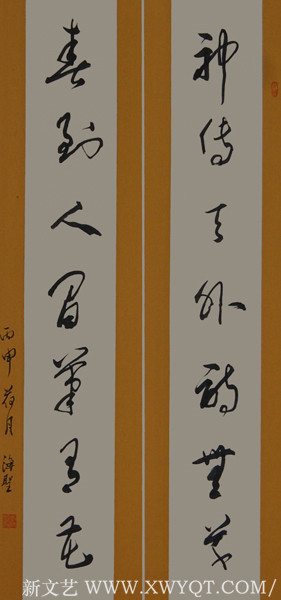 神傳天外詩無草
春到人間筆有花
丙申荷月
新文艺 WWW.XWYQT.COM/